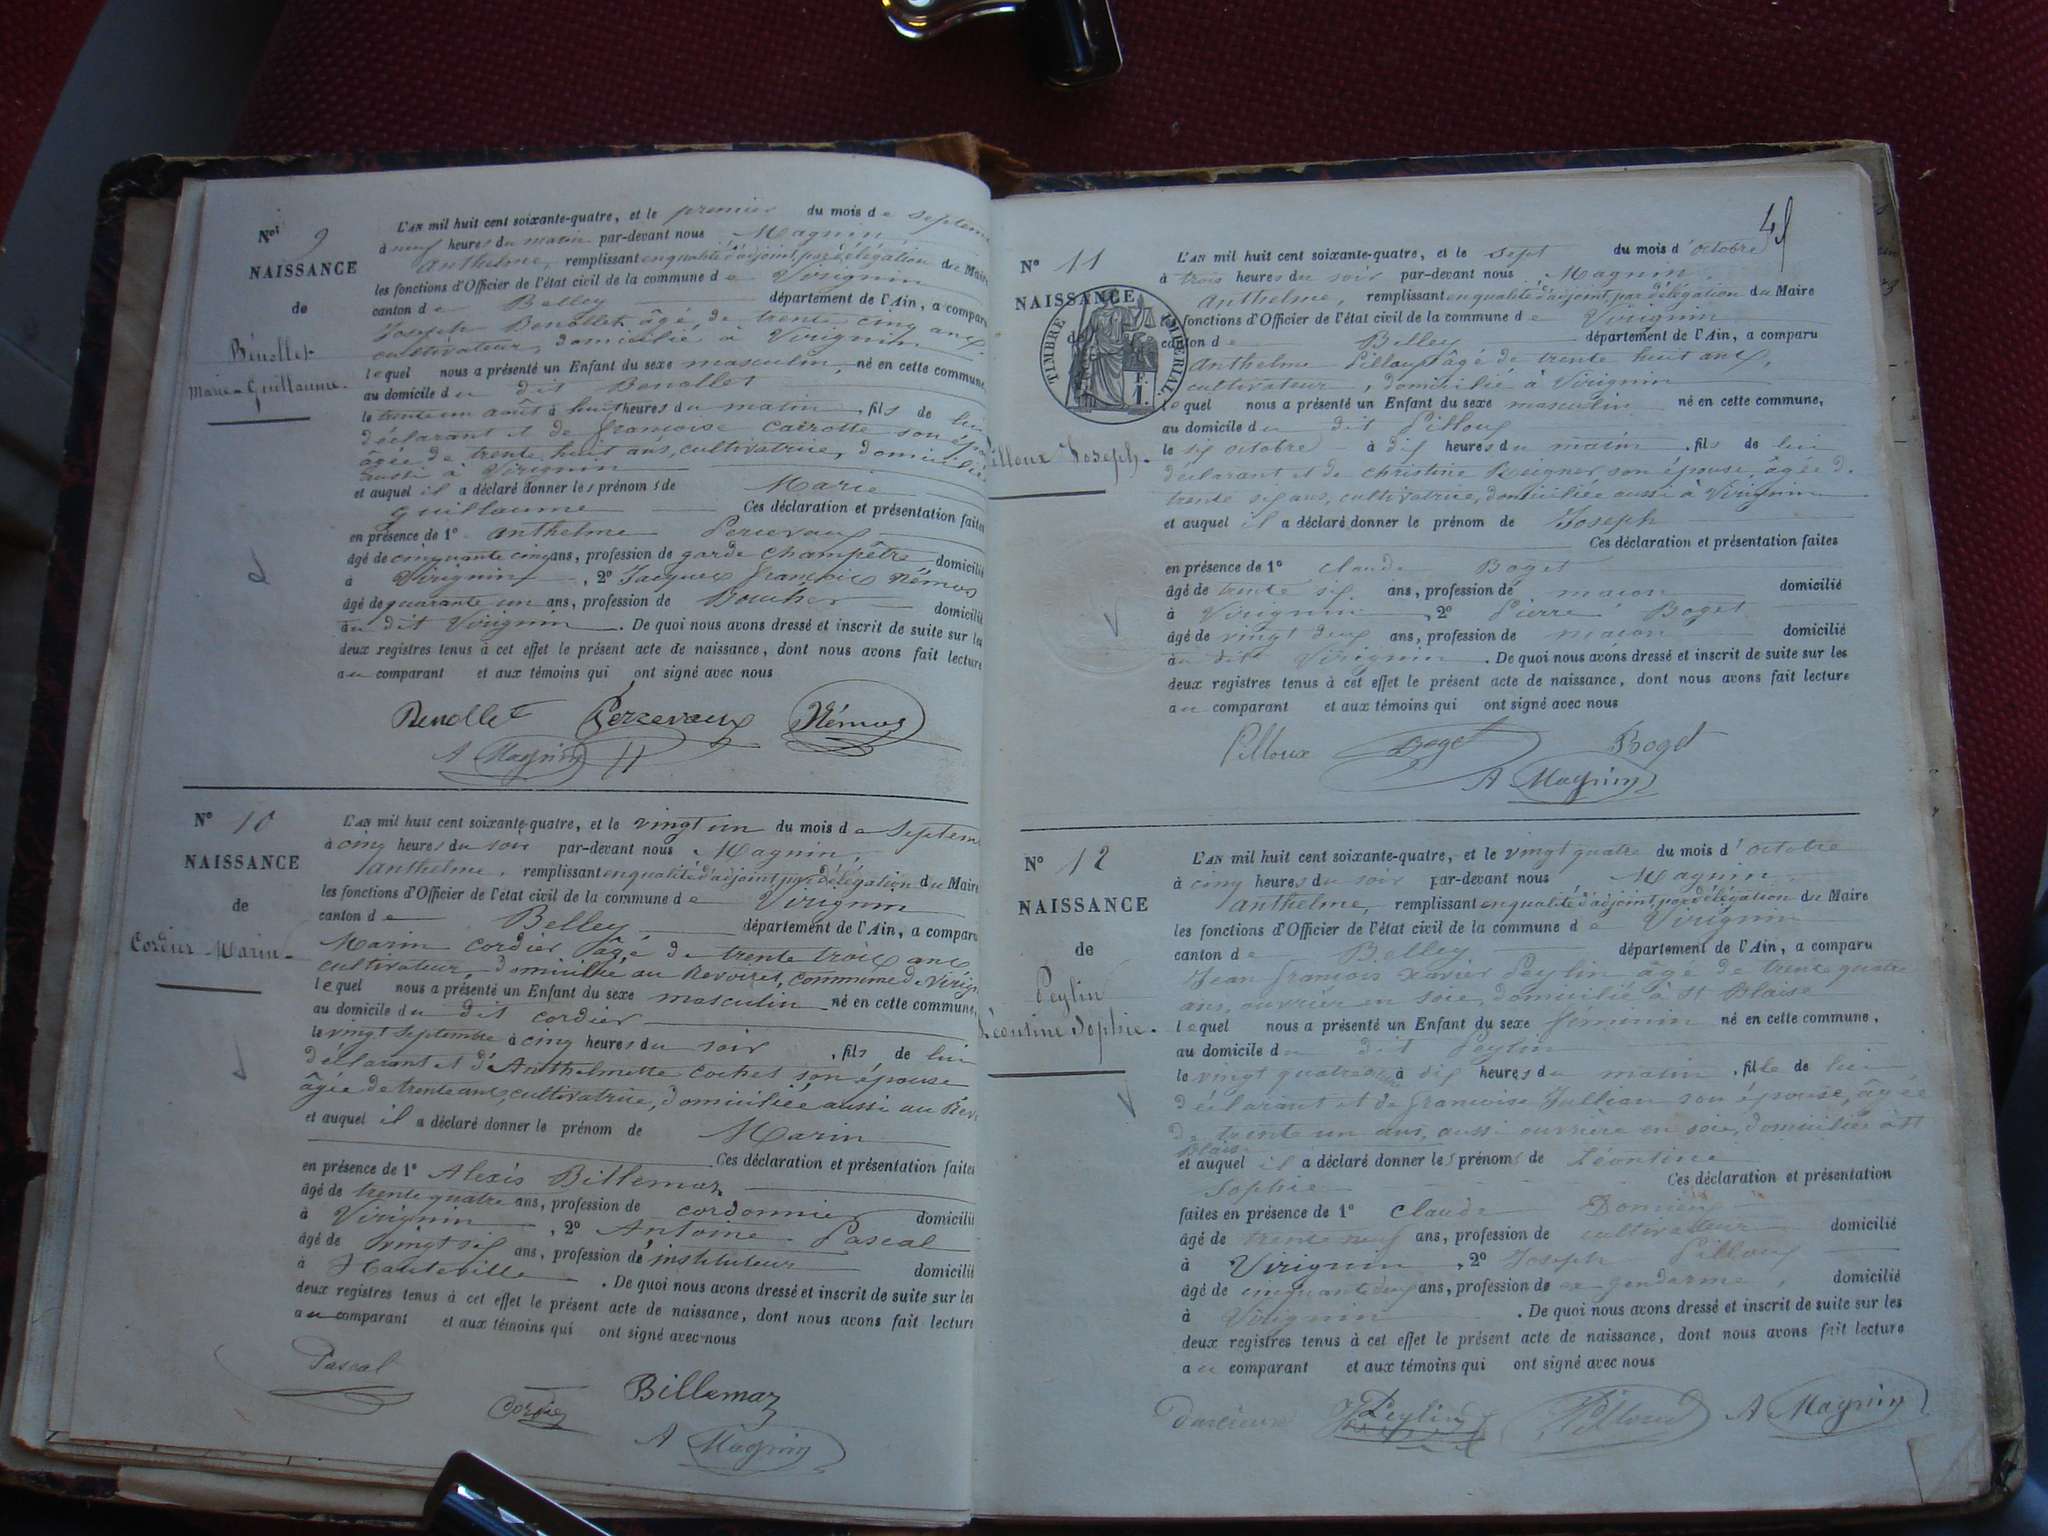 N° 9
NAISSANCE
de
Bénollet
Marie-Guillaume.
L'AN mil huit cent soixante-quatre, et le premier du mois de Septem
à neuf heures du matin par-devant nous Magnin,
Anthelme, remplissant en qualité d'adjoint par délégation du Maire
les fonctions d'Officier de l'état civil de la commune de Virignin
canton de Belley département de l'Ain, a comparu
Joseph Benollet âgé de trente cinq ans
cultivateur, domicilié à Virignin
lequel nous a présenté un Enfant du sexe masculin, né en cette commune,
au domicile du dit Benollet
le trente un août à huit heures du matin, fils de lui
déclarant et de françoise Cairotte son épou
âgée de trente huit ans, cultivatrice, domiciliée
aussi à Virignin
et auquel il a déclaré donner les prénoms de Marie
guillaume Ces déclaration et présentation faites
en présence de 1° anthelme Percevaux
âgé de cinquante cinq ans, profession de garde champêtre domicilié
à Virignin, 2° Jacques françois Némos
âgé de quarante un ans, profession de Boucher domicilié
au dit Virignin. De quoi nous avons dressé et inscrit de suite sur les
deux registres tenus à cet effet le présent acte de naissance, dont nous avons fait lecture
au comparant et aux témoins qui ont signé avec nous
Benollet Percevaux Némos
A Magnin
N° 10
NAISSANCE
de
Cordier Marin.
L'AN mil huit cent soixante-quatre, et le vingt un du mois de Septem
à cinq heures du soir par-devant nous Magnin,
anthelme, remplissant en qualité d'adjoint par délégation du Maire
les fonctions d'Officier de l'état civil de la commune de Virignin
canton de Belley département de l'Ain, a comparu
Marin Cordier âgé de trente trois ans
cultivateur, domicilié au Revoiret, commune de Virign
lequel nous a présenté un Enfant du sexe masculin né en cette commune,
au domicile du dit Cordier
le vingt Septembre à cinq heures du soir, fils de lui
déclarant et d'Anthelmette Cochet son épouse
âgée de trente ans, cultivatrice, domiciliée aussi au Rev
et auquel il a déclaré donner le prénom de Marin
Ces déclaration et présentation faites
en présence de 1° Alexis Billemaz
âgé de trente quatre ans, profession de cordonnier domicilié
à Virignin, 2° Antoine Pascal
âgé de vingt six ans, profession de instituteur domicilié
à Hauteville. De quoi nous avons dressé et inscrit de suite sur les
deux registres tenus à cet effet le présent acte de naissance, dont nous avons fait lecture
au comparant et aux témoins qui ont signé avec nous
Pascal Cordier Billemaz
A Magnin
N° 11
NAISSANCE
de
TIMBRE IMPERIAL
F.
1.
illoux Joseph.
L'AN mil huit cent soixante-quatre, et le sept du mois d'octobre
à trois heures du soir par-devant nous Magnin,
Anthelme, remplissant en qualité d'adjoint par délégation du Maire
fonctions d'Officier de l'état civil de la commune de Virignin
canton de Belley département de l'Ain, a comparu
Anthelme Pilloux âgé de trente huit ans,
cultivateur, domicilié à Virignin
lequel nous a présenté un Enfant du sexe masculin né en cette commune,
au domicile du dit Pilloux
le six octobre à dix heures du matin, fils de lui
déclarant et de Christine Reugner son épouse, âgée de
trente six ans, cultivatrice, domiciliée aussi à Virignin
et auquel il a déclaré donner le prénom de Joseph
Ces déclaration et présentation faites
en présence de 1° Claude Boget
âgé de trente six ans, profession de maçon domicilié
à Virignin, 2° Pierre Boget
âgé de vingt deux ans, profession de maçon domicilié
au dit Virignin. De quoi nous avons dressé et inscrit de suite sur les
deux registres tenus à cet effet le présent acte de naissance, dont nous avons fait lecture
au comparant et aux témoins qui ont signé avec nous
Pilloux Boget Boget
A Magnin
N° 12
NAISSANCE
de
Peylin
Léontine Sophie.
L'AN mil huit cent soixante-quatre, et le vingt quatre du mois d'octobre
à cinq heures du soir par-devant nous Magnin
anthelme, remplissant en qualité d'adjoint par délégation du Maire
les fonctions d'Officier de l'état civil de la commune de Virignin
canton de Belley département de l'Ain, a comparu
Jean françois Xavier Peylin âgé de trente quatre
ans, ouvrier en soie, domicilié à St Blaise
lequel nous a présenté un Enfant du sexe féminin né en cette commune,
au domicile du dit Peylin
le vingt quatre octobre à dix heures du matin, fille de lui
déclarant et de françoise Jullian son épouse, âgée
de trente un ans, aussi ouvrière en soie, domiciliée à St
Blaise
et auquel il a déclaré donner les prénoms de Léontine
Sophie Ces déclaration et présentation
faites en présence de 1° Claude
âgé de trente neuf ans, profession de cultivateur domicilié
à Virignin, 2° Joseph Pilloux
âgé de cinquante deux ans, profession de ex gendarme, domicilié
à Virignin. De quoi nous avons dressé et inscrit de suite sur les
deux registres tenus à cet effet le présent acte de naissance, dont nous avons fait lecture
au comparant et aux témoins qui ont signé avec nous
Peylin Pilloux A Magnin